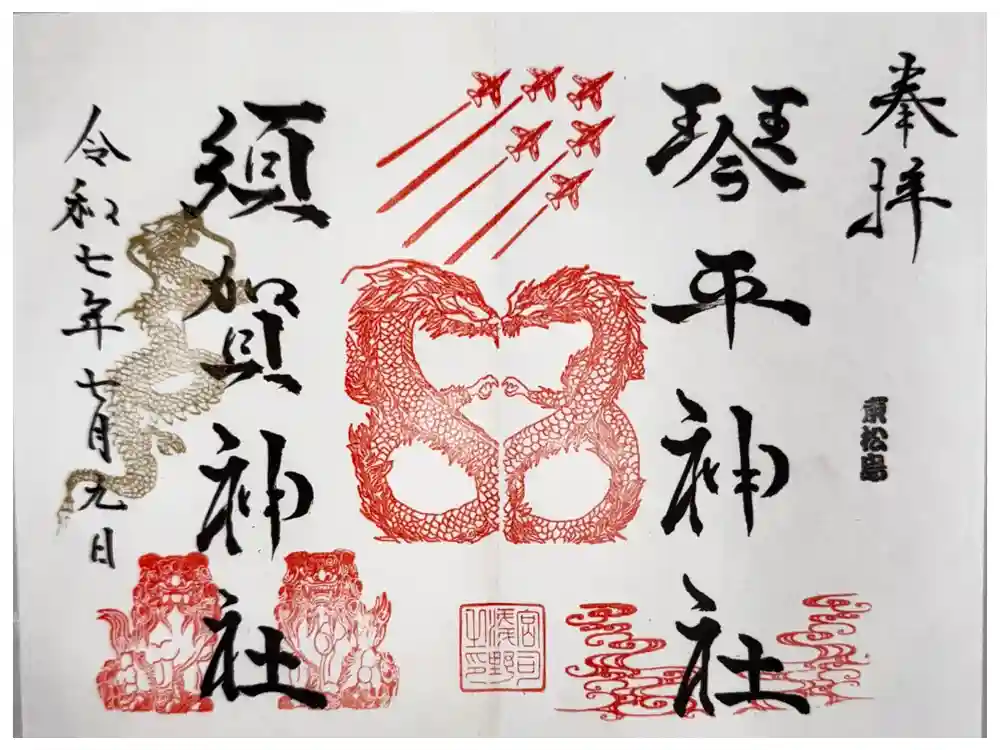 奉拝
東松島
琴平神社
須賀神社
令和七年七月九日
宮司
浅野
之印